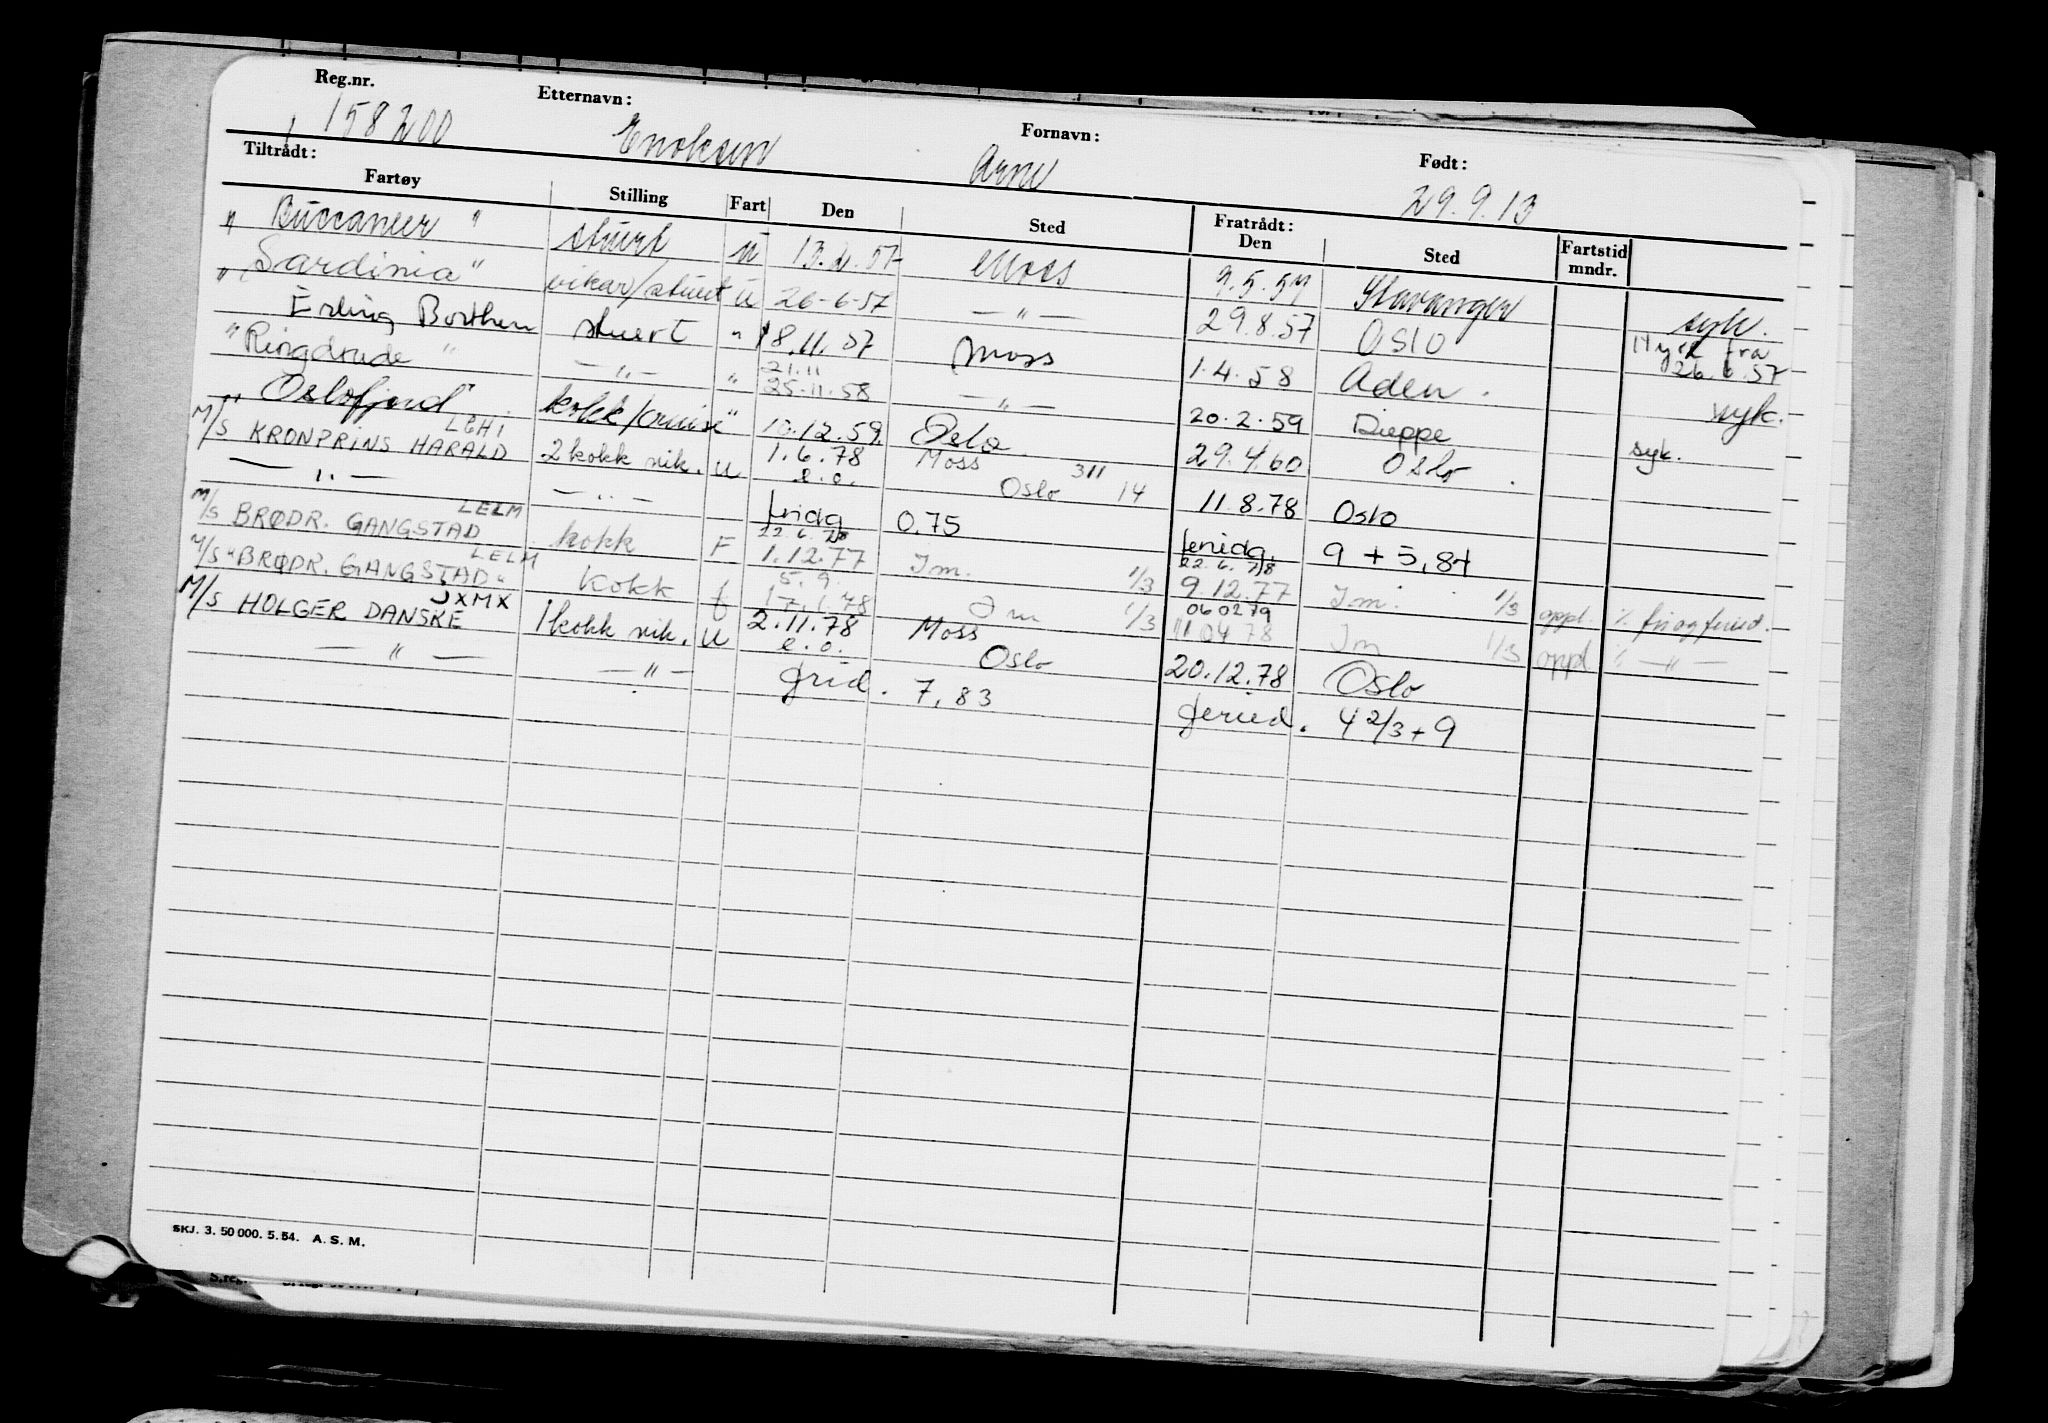 Reg.nr. Etternavn: Fornavn: Født:
158200 Enoksen Arne 29.9.13
Tiltrådt: Fratrådt:
Fartøy Stilling Fart Den Sted Den Sted Fartstid mndr.
"Buccaneer" stuert u 57 Moss 9.5.57 Stavanger syk.
"Sardinia" vikar/stuert u 26-6-57 — " — 29.8.57 Oslo Hyrt fra 26.6.57
Erling Borthen stuert " 18.11.57 Moss 1.4.58 Aden. syk.
"Ringdrude" — " — " 21.11 25-11-58 — " — 20.2.59 Dieppe syk.
"Oslofjord" kokk/cruise " 10.12.59 Oslo 29.4.60 Oslo.
M/S KRONPRINS HARALD LEHI 2 kokk vik. u 1.6.78 Moss 311 11.8.78 Oslo
— " — — " — e.o. Oslo 14
fridg 0.75 feriedg. 9 + 5,84
M/S BRØDR. GANGSTAD LELM kokk F 22.6.78 1.12.77 Im. 1/3 22.6.78 9.12.77 Im. 1/3 oppl. % fri og feried.
M/S "BRØDR. GANGSTAD" LELM kokk f 5.9. 17.1.78 Im 1/3 060279 110478 Im 1/3 oppl % — " —
M/S HOLGER DANSKE JXMX 1 kokk vik. u 2.11.78 Moss 20.12.78 Oslo
— " — — " — e.o. Oslo
frid. 7,83 feried. 4 2/3 + 9
SKJ. 3. 50 000. 5. 54. A. S. M.
S.reg.